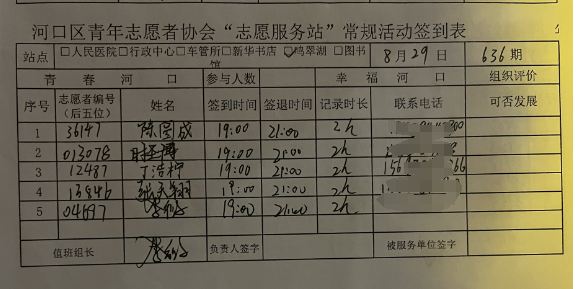 河口区青年志愿者协会“志愿服务站”常规活动签到表
站点 □人民医院□行政中心□车管所□新华书店 ☑鸣翠湖 □图书馆 8月29日 636期
青春河口 参与人数 幸福河口 组织评价
序号 志愿者编号（后五位） 姓名 签到时间 签退时间 记录时长 联系电话 可否发展
1 36147 19:00 21:00 2h
2 013078 19:00 21:00 2h
3 12487 丁浩柠 19:00 21:00 2h
4 13846 19:00 21:00 2h
5 04697 19:00 21:00 2h
值班组长 负责人签字 被服务单位签字